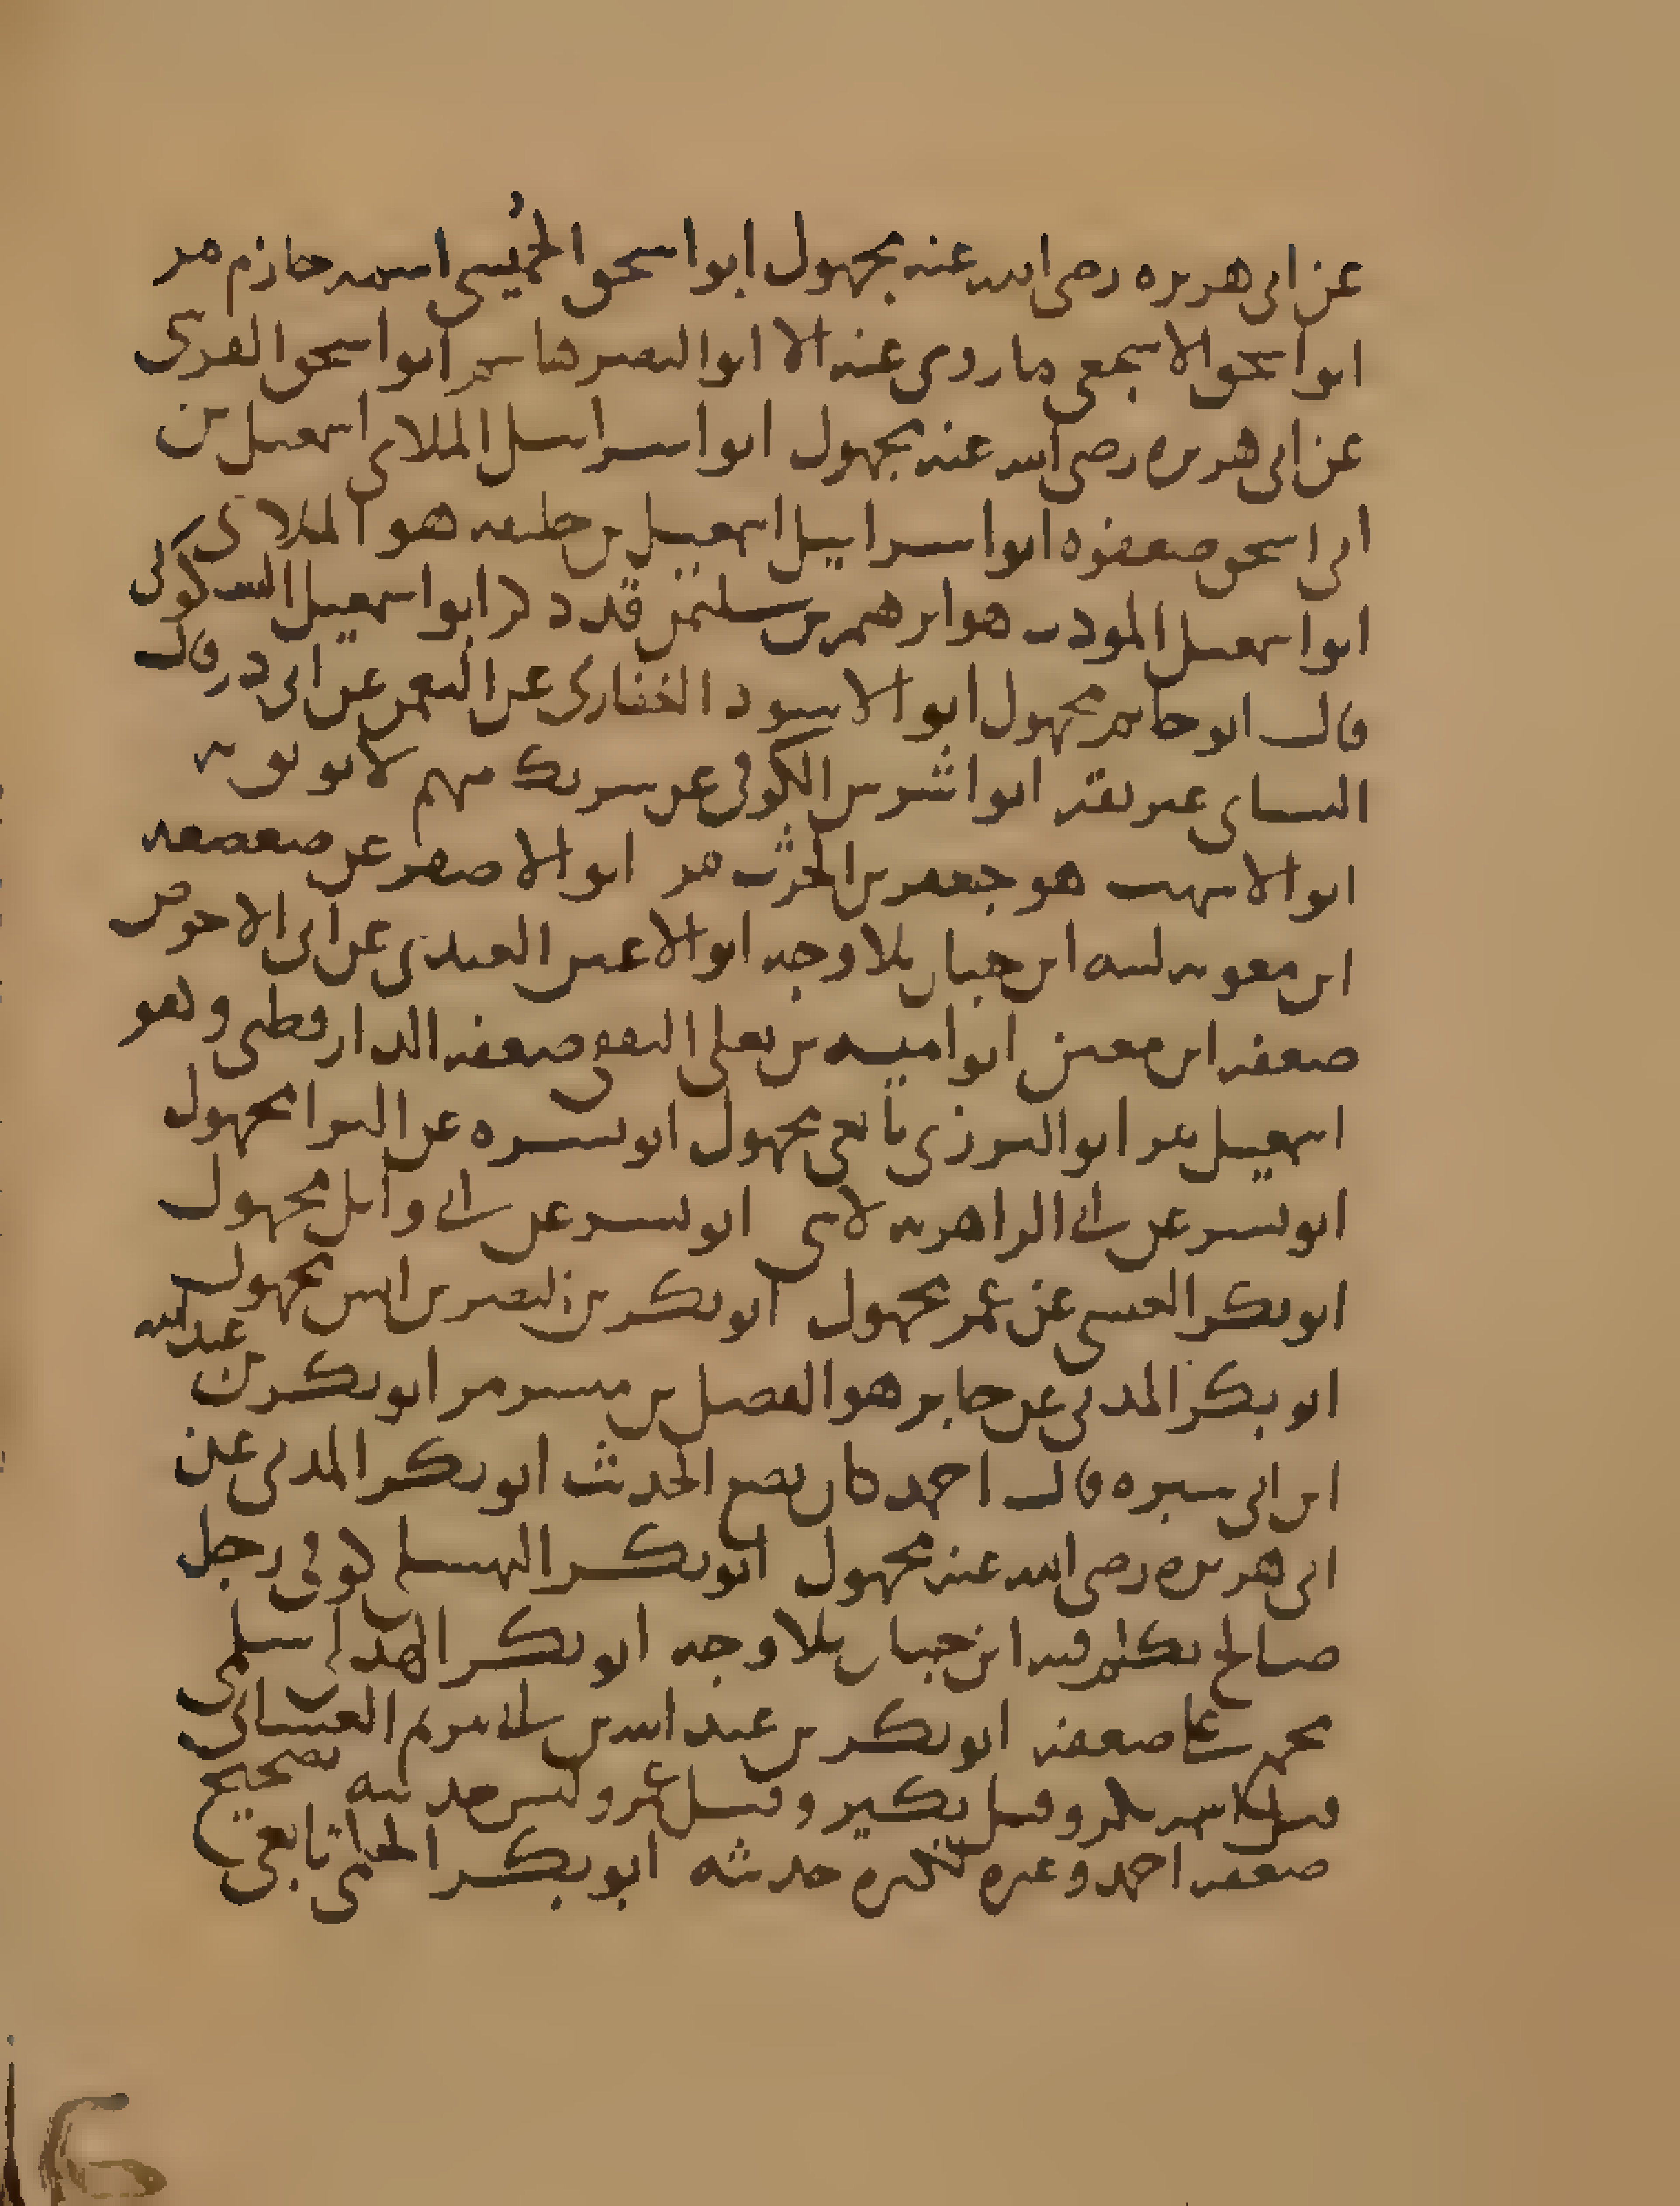 عن ابى هريره رضى الله عنه مجهول ابو اسحق الحُميسى اسمه حازم مر
ابو اسحق الاشجعى ما روى عنه الا ابو النضر هاشم ابو اسحق
عن ابى هريره رضى الله عنه مجهول ابو اسراىيل الملاى اسمعيل بن
ابى اسحق ضعفوه ابو اسراييل اسمعيل بن خليفه هو الملاى
ابو اسمعيل المودب هو ابرهيم بن سليمن قد ذكر ابو اسمعيل السكونى
قال ابو حاتم مجهول ابو الاسود الغفارى عن النعمن عن ابى ذر قال
النساى غير ثقه ابو اشرس الكوفى عن شريك متهم لا يوثق به
ابو الاشهب هو جعفر بن الحرث مر ابو الاصفر عن صعصعه
ابن معويه لينه ابن حبان بلا وجه ابو الاعين العبدى عن ابى الاحوص
ضعفه ابن معين ابو اميه بن يعلى الثقفى ضعفه الدارقطنى وهو
اسمعيل مر ابو البزرى تابعى مجهول ابو بسره عن البرا مجهول
ابو بشر عن ابى الزاهريه لا شى ابو بشر عن ابى وائل مجهول
ابو بكر العنسى عن عمر مجهول ابو بكر بن النضر بن انس مجهول
ابو بكر المدنى عن جابر هو الفضل بن مبشر مر ابو بكر بن عبد الله
ابن ابى سبره قال احمد كان يضع الحديث ابو بكر المدنى عن
ابى هريره رضى الله عنه مجهول ابو بكر النهشلى كوفى رجل
صالح تكلم فيه ابن حبان بلا وجه ابو بكر الهذلى سلمى
مجمع على ضعفه ابو بكر بن عبد الله بن ابى مريم الغسانى
قيل اسمه بكر وقيل بكير وقيل عمرو ليس حديثه بصحيح
ضعفه احمد وغيره لنكره حديثه ابو بكر تابعى